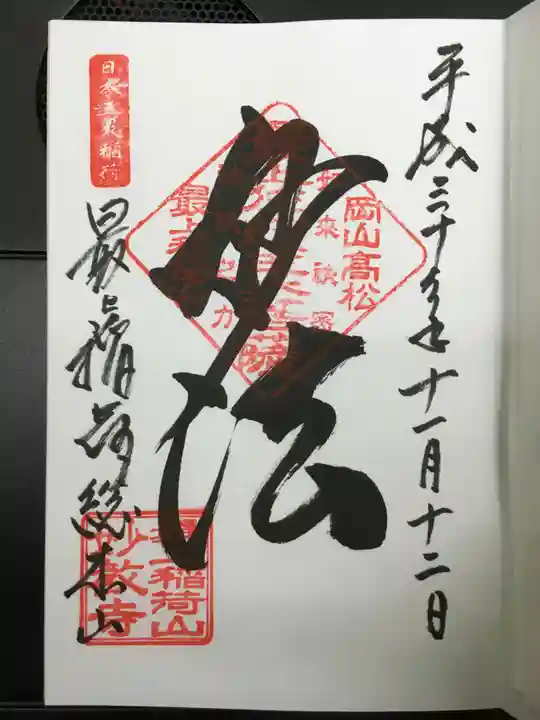 平成三十年十一月十二日
妙法
岡山高松
日本三大稲荷
最上稲荷総本山
最上稲荷山
妙教寺